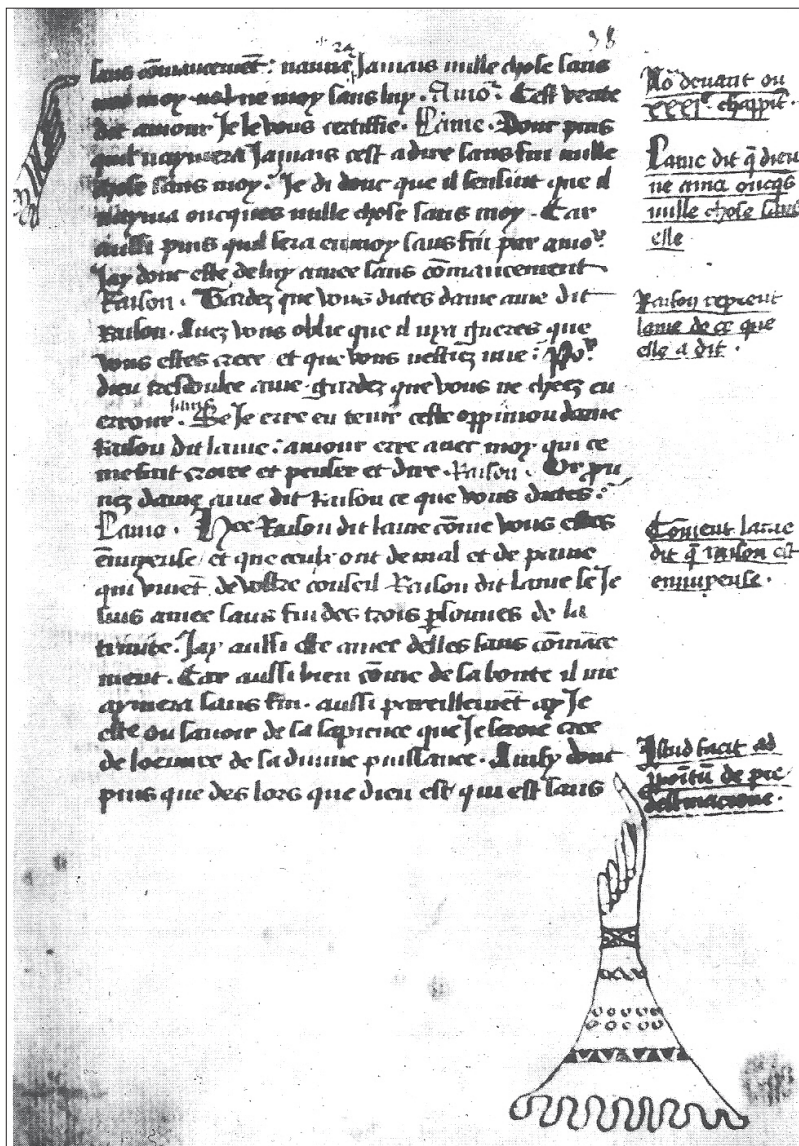 38
sans cōmancemēt: Jamais nulle chose sans
moy ne moy sans luy. Amoʳ. Cest verite
dit amour Je le vous certiffie. Lame. Donc puis
quil naymera Jamais cest adire sans fin nulle
chose sans moy. Je di donc que il sensuit que il
nayma oncques nulle chose sans moy. Car
aussi puis quil sera en moy sans fin par amoʳ.
Jay donc este de luy amee sans cōmancement
Raison. Gardez que vous dictes dame ame dit
Raison. Auez vous oblie que il nya gueres que
vous estes cree et que vous nestiez mie: Poʳ
dieu tresdoulce ame gardez que vous ne cheez en
errour. Se Je erre en tenir ceste oppinion dame
Raison dit lame: amour erre auec moy qui ce
me fait croire et penser et dire. Raison. Or
nez dame ame dit Raison ce que vous dictes:
Lame. Raison dit lame cōme vous estes
ēnuyeuse et que ceulx ont de mal et de paine
qui viuēt de vostre conseil Raison dit lame se Je
suis amee sans fin des trois psonnes de la
trinite. Jay aussi este amee delles sans cōmāce
ment. Car aussi bien cōme de sa bonte il me
aymera sans fin. aussi pareillemēt ay Je
este ou sauoir de sa sapience que Je seroie cree
de loeuure de sa diuine puissance. Ainsy donc
puis que des lors que dieu est qui est sans
Noᵃ deuant ou
xxxiᵉ chappitᵉ.
Lame dit q̄ dieu
ne ama oncqs
nulle chose sans
elle
Raison reprent
lame de ce que
elle a dit.
Cōment lame
dit q̄ raison est
ennuyeuse.
Istud facit ad
de pre
destinacione.